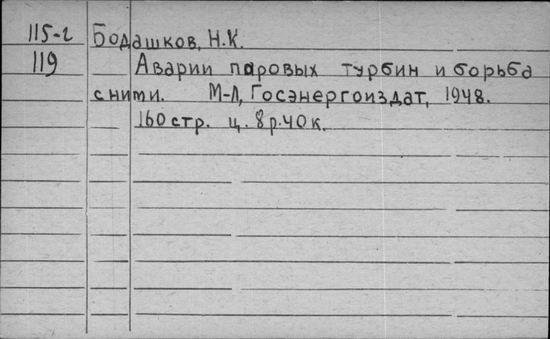 115-г Бодашков, Н.К.
119 Аварии паровых турбин и борьба
с ними. М-Л, Госэнергоиздат, 1948.
160 стр. ц. 8 р. 40 к.